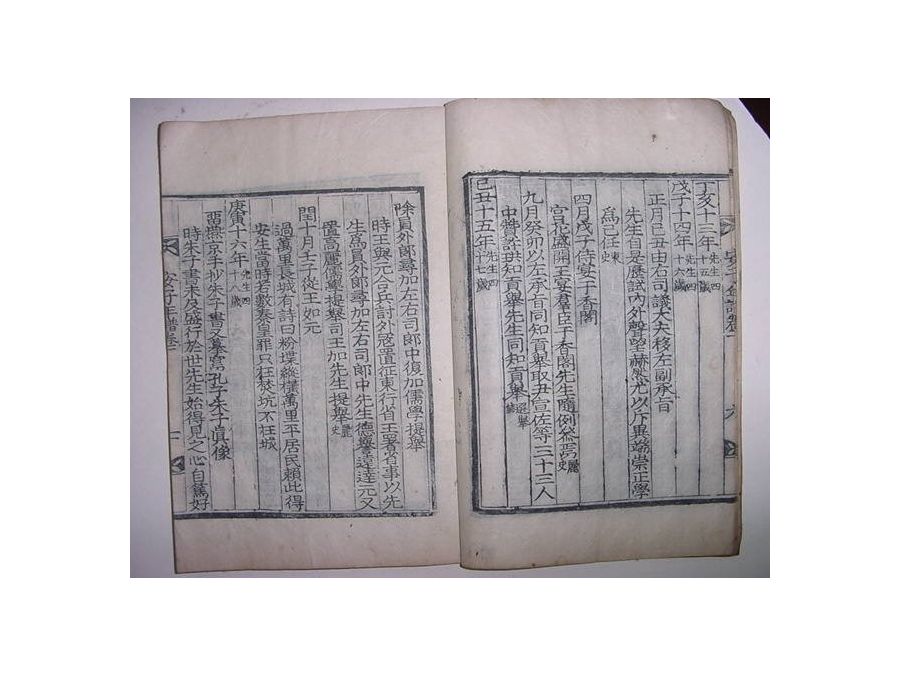 丁亥十三年先生四十五歲
戊子十四年先生四十六歲
正月己丑由右司議大夫移左副承旨
先生自是歷試內外聲望赫然尤以斥異端崇正學
爲己任東史
四月戊子侍宴于香閣
宮花盛開王宴羣臣于香閣先生隨例參焉麗史
九月癸卯以左承旨同知貢舉取尹宣佐等三十三人
知貢舉先生同知貢舉選舉
己丑十五年先生四十七歲
除員外郞尋加左右司郞中復加儒學提舉
時王與元合兵討外寇置征東行省王署省事以先
生爲員外郞尋加左右司郞中先生德譽達元又
置高麗儒學提舉司王加先生提舉麗史
閏十月壬子從王如元
過萬里長城有詩曰粉堞縱橫萬里平居民賴此得
安生當時若數秦皇罪只在焚坑不在城
庚寅十六年先生四十八歲
留燕京手抄朱子書又摹寫孔子朱子眞像
時朱子書未及盛行於世先生始得見之心自篤好
安子年譜卷一